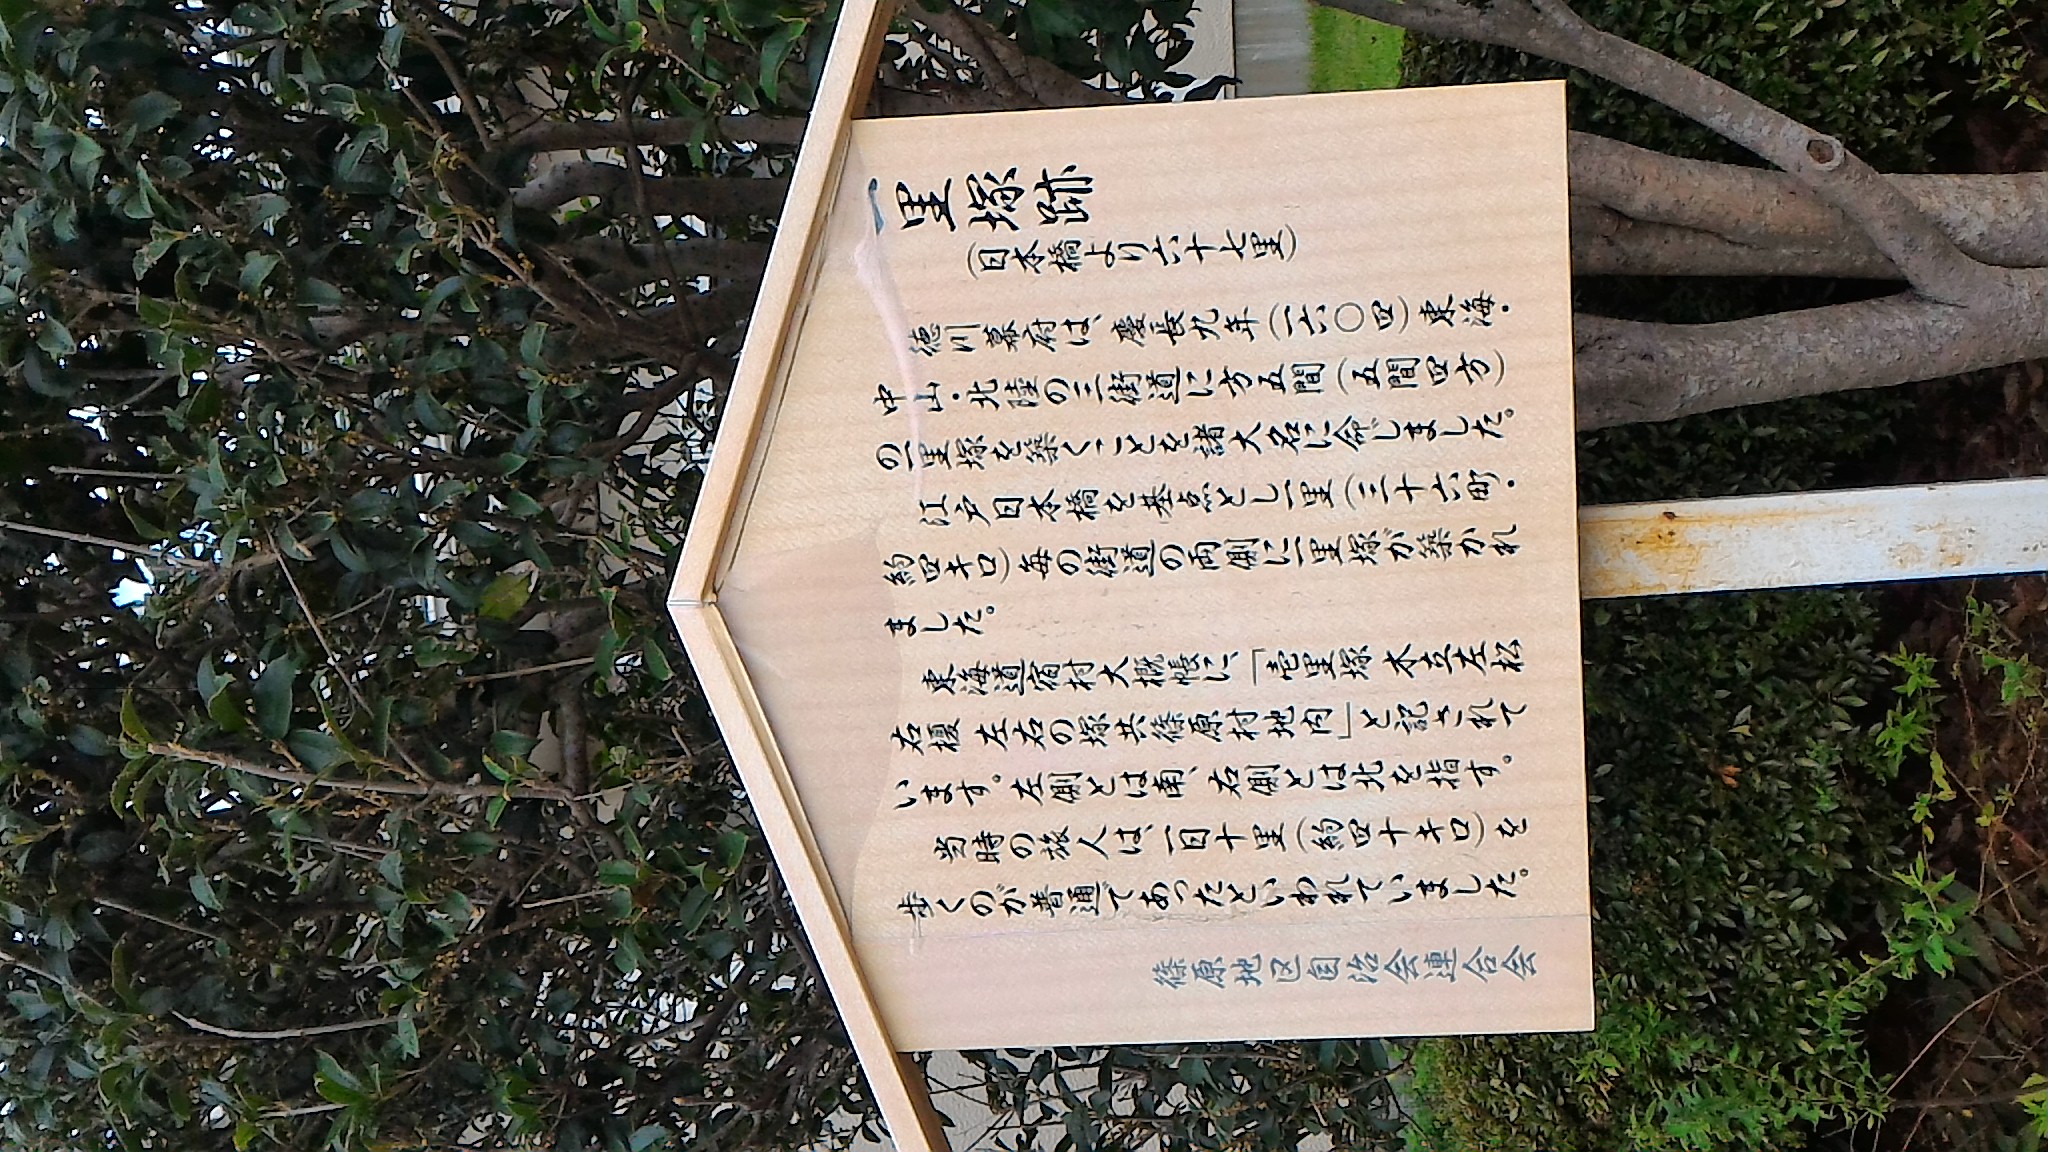 一里塚跡
(日本橋より六十七里)
徳川幕府は、慶長九年(一六〇四)東海・
中山・北陸の三街道に方五間(五間四方)
の一里塚を築くことを諸大名に命じました。
江戸日本橋を基点とし一里(三十六町・
約四キロ)毎の街道の両側に一里塚が築かれ
ました。
東海道宿村大概帳に、「壱里塚 木立左松
右榎 左右の塚共篠原村地内」と記されて
います。左側とは南、右側とは北を指す。
当時の旅人は、一日十里(約四十キロ)を
歩くのが普通であったといわれていました。
篠原地区自治会連合会